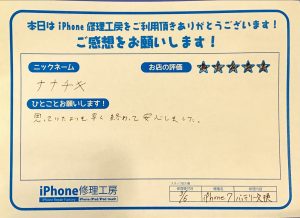 本日は iPhone 修理工房をご利用頂きありがとうございます!
ご感想をお願いします!
ニックネーム
お店の評価
ナナチキ
ひとことお願いします!
思ってたよりも早く終わって安心しました。
iPhone修理工房
iPhone Repair Factory
iPhone/iPad/iPod touch
3/6
iPhone7
バッテリー交換